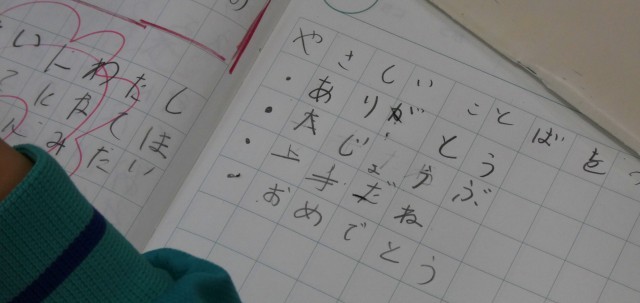 いにわたし
みたい
やさしいことばを
・ありがとう
・大じょうぶ
・上手だね
・おめでとう